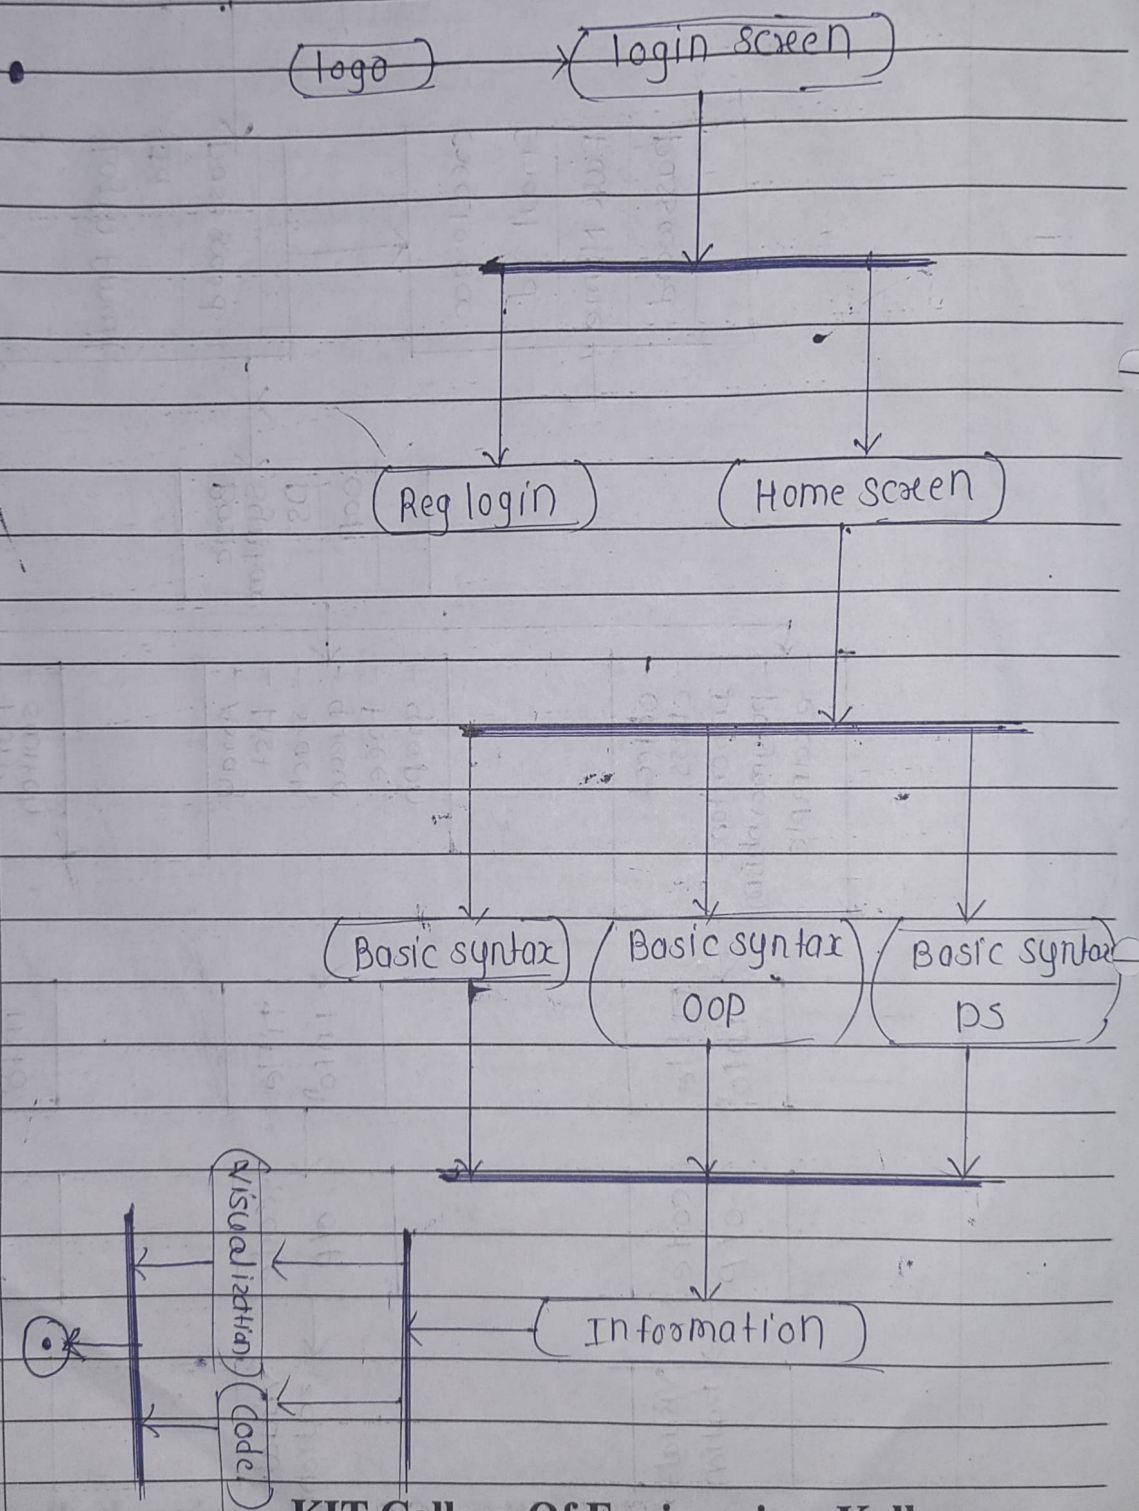 logo
login screen
Reg login
Home screen
Basic syntax
Basic syntax
OOP
Basic syntax
DS
Visualization
Information
Code